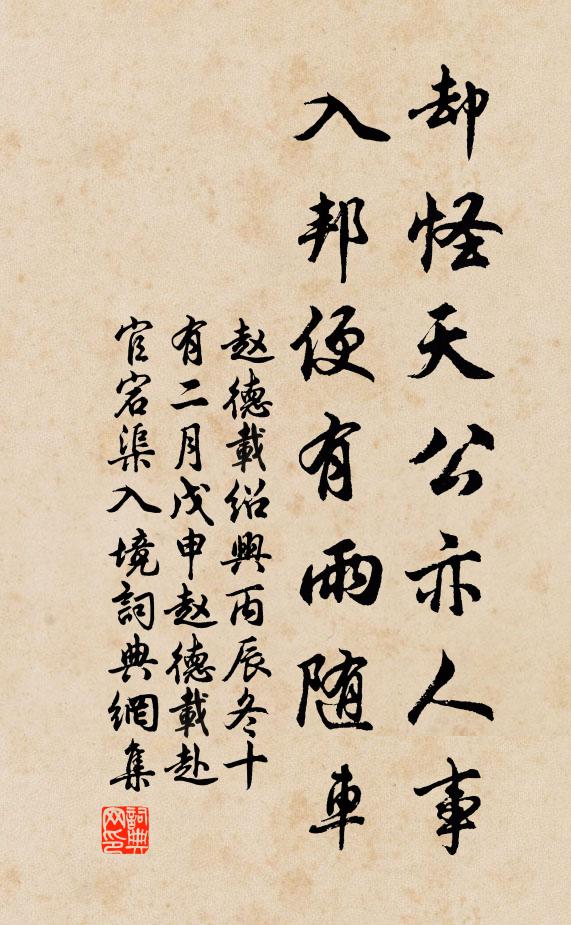 却怪天公亦人事
入邦便有雨随車
赵德載紹興丙辰冬十
有二月戊申赵德載赴
官宕渠入境詞典網集
詞典
网印